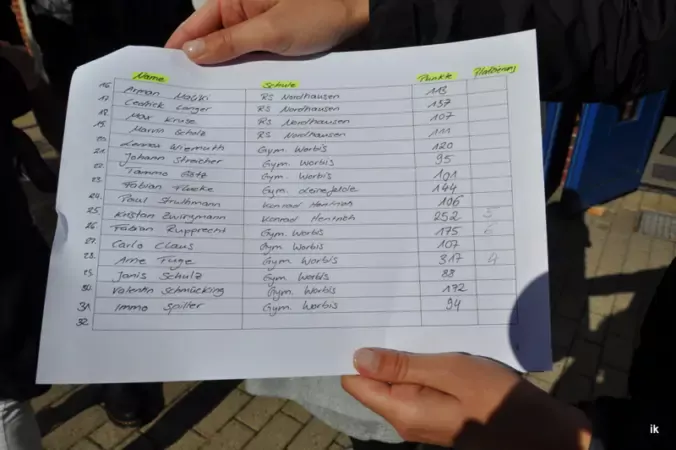 Name Schule Punkte Platzierung
16. Arman Maliki RS Nordhausen 113
17. Cedrick Langer RS Nordhausen 137
18. Max Kruse RS Nordhausen 107
19. Marvin Scholz RS Nordhausen 111
20. Lennox Wiemuth Gym. Worbis 120
21. Johann Streicher Gym. Worbis 95
22. Tammo Gym. Worbis 101
23. Fabian Gym. Leinefelde 144
24. Paul Konrad 106
25. Kristan Zwingmann Konrad Hentrich 252 5
26. Fabian Rupprecht Gym. Worbis 175 6
27. Carlo Claus Gym. Worbis 107
28. Arne Fuge Gym. Worbis 317
29. Janis Schulz Gym. Worbis 88
30. Valentin Schmücking Gym. Worbis 172
31. Immo Spiller Gym. Worbis 94
32.
ik